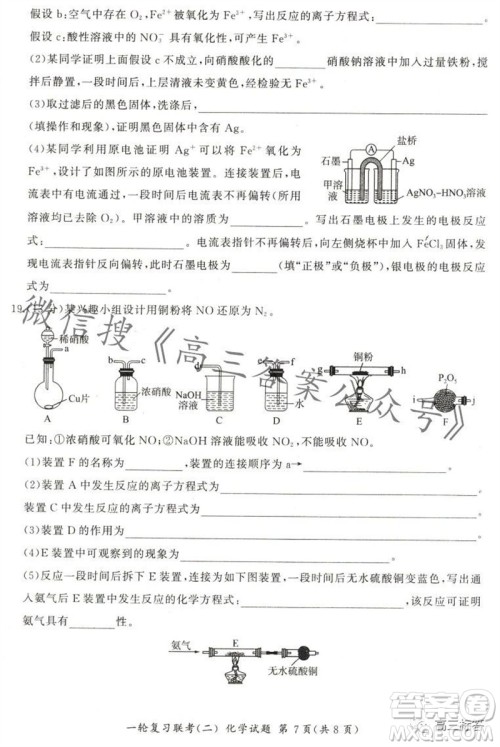 假设b:空气中存在O₂,Fe²⁺被O₂氧化为Fe³⁺,写出反应的离子方程式:
假设c:酸性溶液中的NO₃⁻具有氧化性,可产生Fe³⁺。
(2)某同学证明上面假设c不成立,向硝酸酸化的 硝酸钠溶液中加入过量铁粉,搅
拌后静置,一段时间后,上层清液未变黄色,经检验无Fe³⁺。
(3)取过滤后的黑色固体,洗涤后,
(填操作和现象),证明黑色固体中含有Ag。
(4)某同学利用原电池证明Ag⁺可以将Fe²⁺氧化为
Fe³⁺,设计了如图所示的原电池装置。连接装置后,电
流表中有电流通过,一段时间后电流表不再偏转(所用
溶液均已除氧)。甲溶液为 。写出石墨电极上发生的电极反应
式: 。电流表指针不再偏转后,向左侧烧杯中加入FeCl₂固体,发
现电流表指针反向偏转,此时石墨电极为 (填“正极”或“负极”),银电极的电极反应
式为 。
A
盐桥
石墨
Ag
甲溶液
AgNO₃-HNO₃溶液
19. 分)某兴趣小组设计用铜粉将NO还原为N₂。
稀硝酸
a
Cu片
A
b
c
浓硝酸
B
NaOH溶液
C
d
e
水
D
铜粉
g
h
E
P₂O₅
i
j
F
已知:①浓硝酸可氧化NO;②NaOH溶液能吸收NO₂,不能吸收NO。
(1)装置F的名称为 ,装置的连接顺序为a→
(2)装置A中发生反应的离子方程式为 ,
装置C中发生反应的离子方程式为 。
(3)装置D的作用为 。
(4)E装置中可观察到的现象为 。
(5)反应一段时间后拆下E装置,一段时间后可观察到无水硫酸铜变蓝,写出
通入氨气后E装置中发生反应的化学方程式: ,该反应可证明
氨气具有 性。
氨气
E
无水硫酸铜
一轮复习联考(二) 化学试题 第7页(共8页)
微信搜《高三答案公众号》